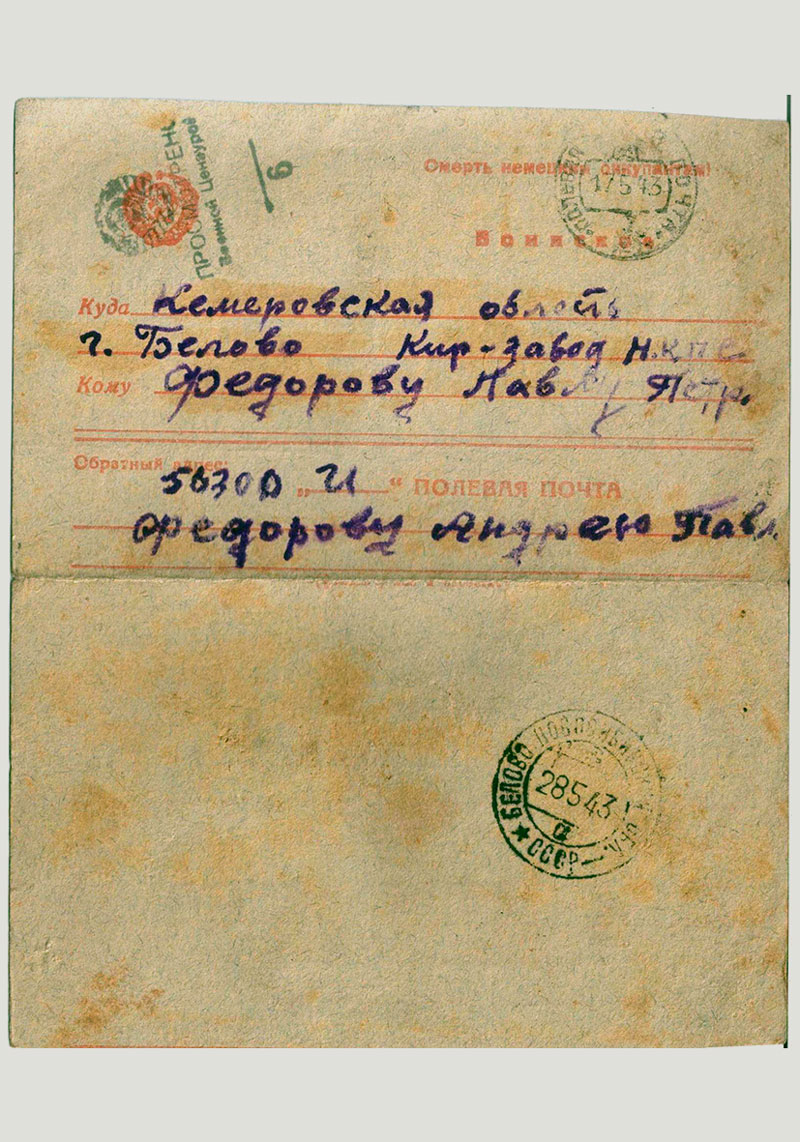 ПРОСМОТРЕНО
Военной Цензурой
6
Смерть немецким оккупантам!
ПОЛЕВАЯ ПОЧТА
17 5 43
Воинское
Куда Кемеровская область
г. Белово Кир-завод Н.К.П.С.
Кому Федорову Павлу Петр.
Обратный адрес:
56300 И
„ “ ПОЛЕВАЯ ПОЧТА
Федорову Андрею Павл.
БЕЛОВО НОВОСИБИРСКОЙ ОБЛ.
28 5 43
а
★ СССР